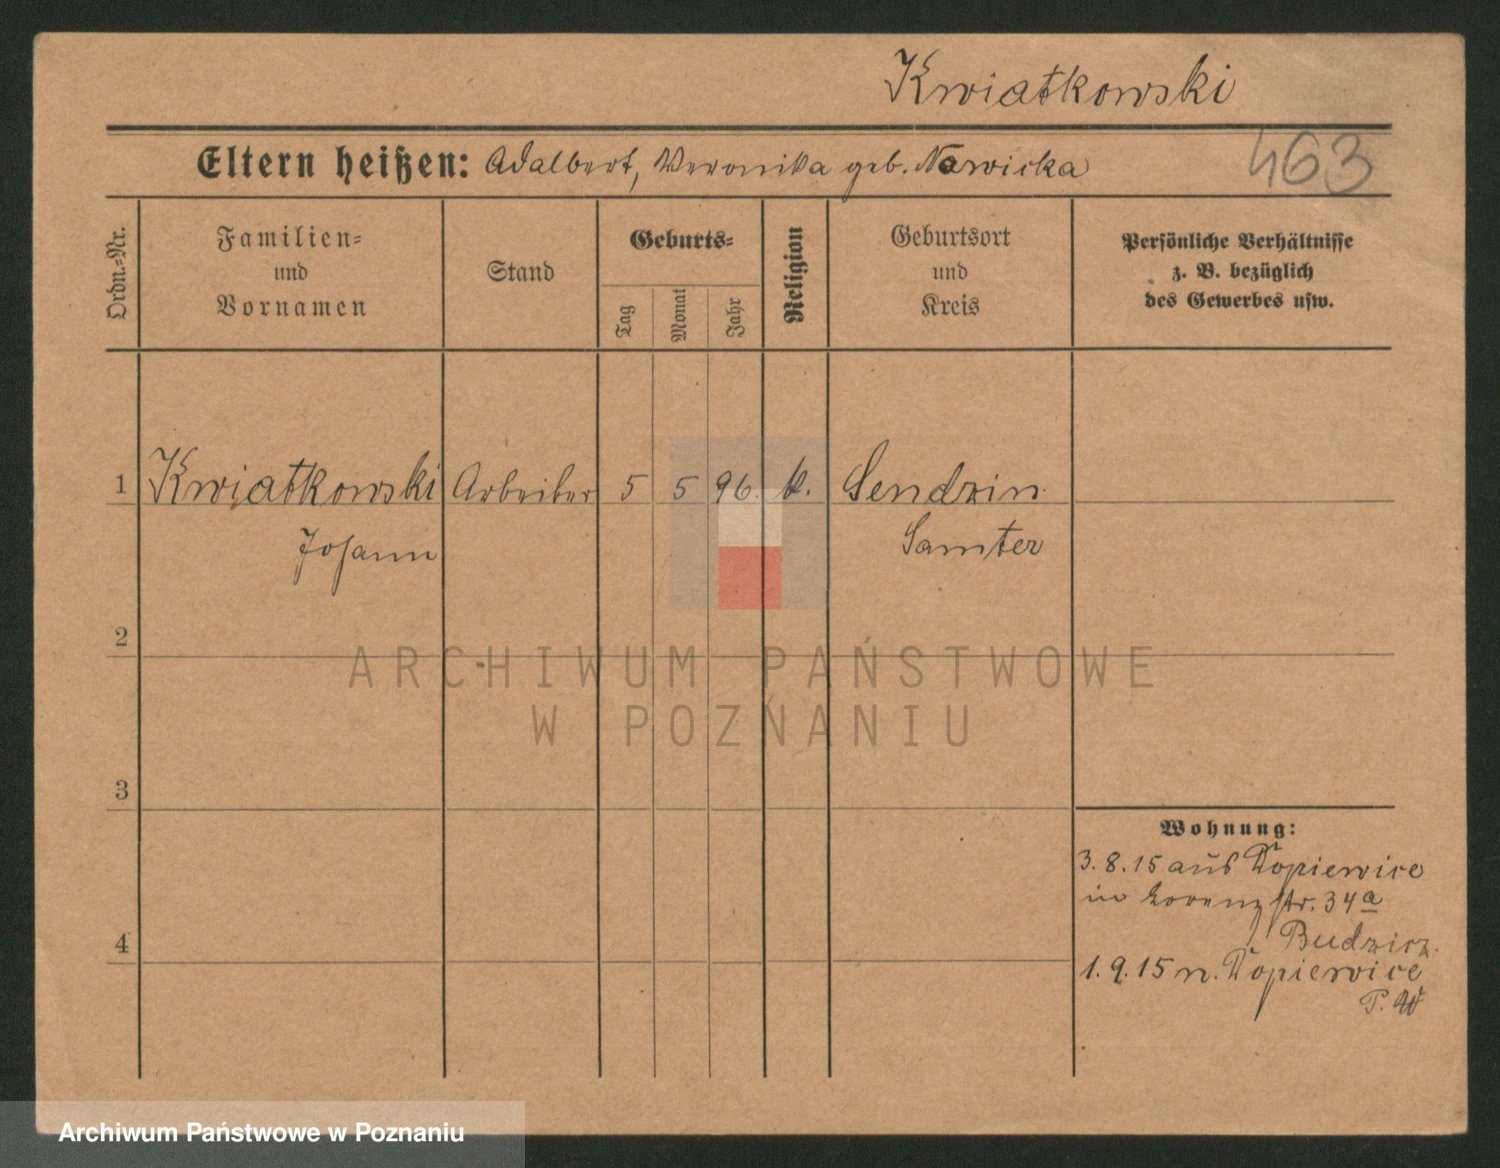 Kwiatkowski
Eltern heißen: Adalbert, Veronika geb. Nowicka
463
Ordn.-Nr.
Familien-
und
Vornamen
Stand
Geburts-
Tag
Monat
Jahr
Religion
Geburtsort
und
Kreis
Persönliche Verhältnisse
z. B. bezüglich
des Gewerbes usw.
1 Kwiatkowski Arbeiter 5 5 96. k. Sendzin
Johann Samter
2
ARCHIWUM PAŃSTWOWE
W POZNANIU
3
Wohnung:
3.8.15 aus Dopiewice
in Lorenzstr. 34a
Budzicz.
4
1.9.15 n. Dopiewice
Archiwum Państwowe w Poznaniu